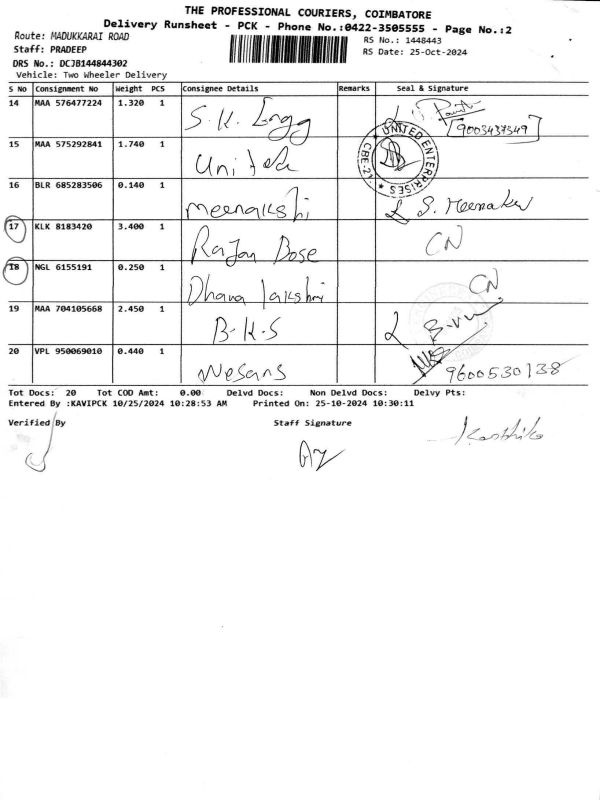 THE PROFESSIONAL COURIERS, COIMBATORE
Delivery Runsheet - PCK - Phone No.:0422-3505555 - Page No.:2
Route: MADUKKARAI ROAD
RS No.: 1448443
Staff: PRADEEP
RS Date: 25-Oct-2024
DRS No.: DCJB144844302
Vehicle: Two Wheeler Delivery
S No Consignment No Weight PCS Consignee Details Remarks Seal & Signature
14 MAA 576477224 1.320 1 S.K. Engg 9003437349
15 MAA 575292841 1.740 1 United UNITED ENTERPRISES CBE-21
16 BLR 685283506 0.140 1 meenakshi S. Meenakshi
17 KLK 8183420 3.400 1 Rajan Bose CN
18 NGL 6155191 0.250 1 Dhana lakshmi CN
19 MAA 704105668 2.450 1 B.K.S
20 VPL 950069010 0.440 1 Wesans 9600530138
Tot Docs: 20 Tot COD Amt: 0.00 Delvd Docs: Non Delvd Docs: Delvy Pts:
Entered By :KAVIPCK 10/25/2024 10:28:53 AM Printed On: 25-10-2024 10:30:11
Verified By Staff Signature
Karthika